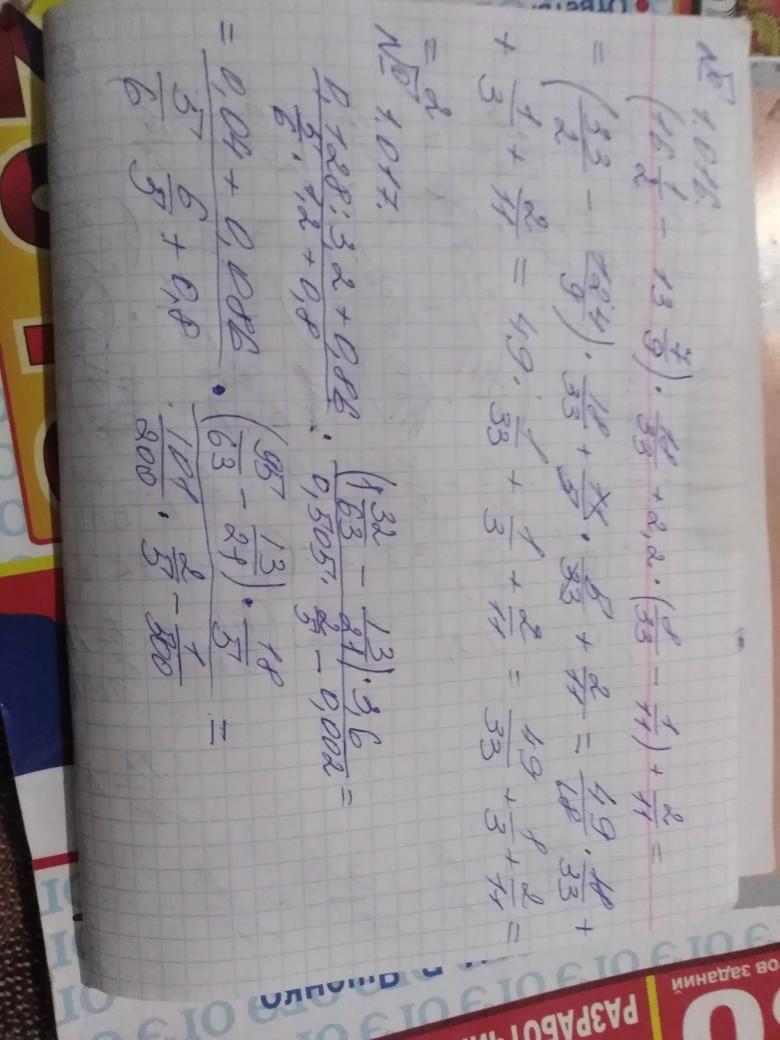 № 1.016.
(16 1/2 - 13 7/9) · 18/33 + 2,2 · (8/33 - 1/11) + 2/11 =
= (33/2 - 124/9) · 18/33 + 11/5 · 5/33 + 2/11 = 49/18 · 18/33 +
+ 1/3 + 2/11 = 49 · 1/33 + 1/3 + 2/11 = 49/33 + 1/3 + 2/11 =
= 2
№ 1.017.
0,128 : 3,2 + 0,86 / 5/6 · 1,2 + 0,8 · (1 32/63 - 13/21) · 3,6 / 0,505 · 2/5 - 0,002 =
= 0,04 + 0,086 / 5/6 · 6/5 + 0,8 · (95/63 - 13/21) · 18/5 / 101/200 · 2/5 - 1/500 =
РАЗРАБОТЧИ
ов заданий
Ященко
Ответы